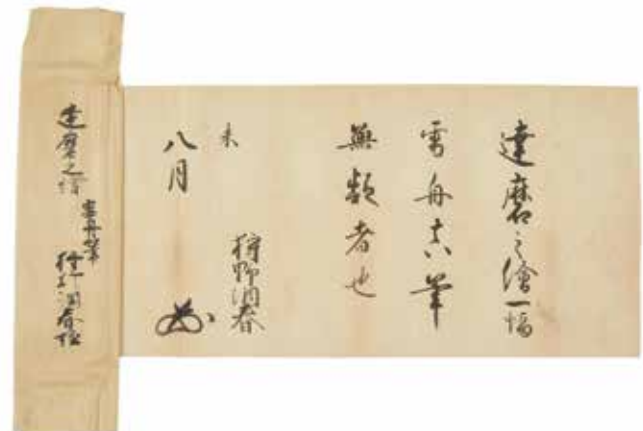 達磨之繪一幅
雪舟真筆
無疑者也
未
八月
狩野洞春
達磨之繪
雪舟筆
狩野洞春極